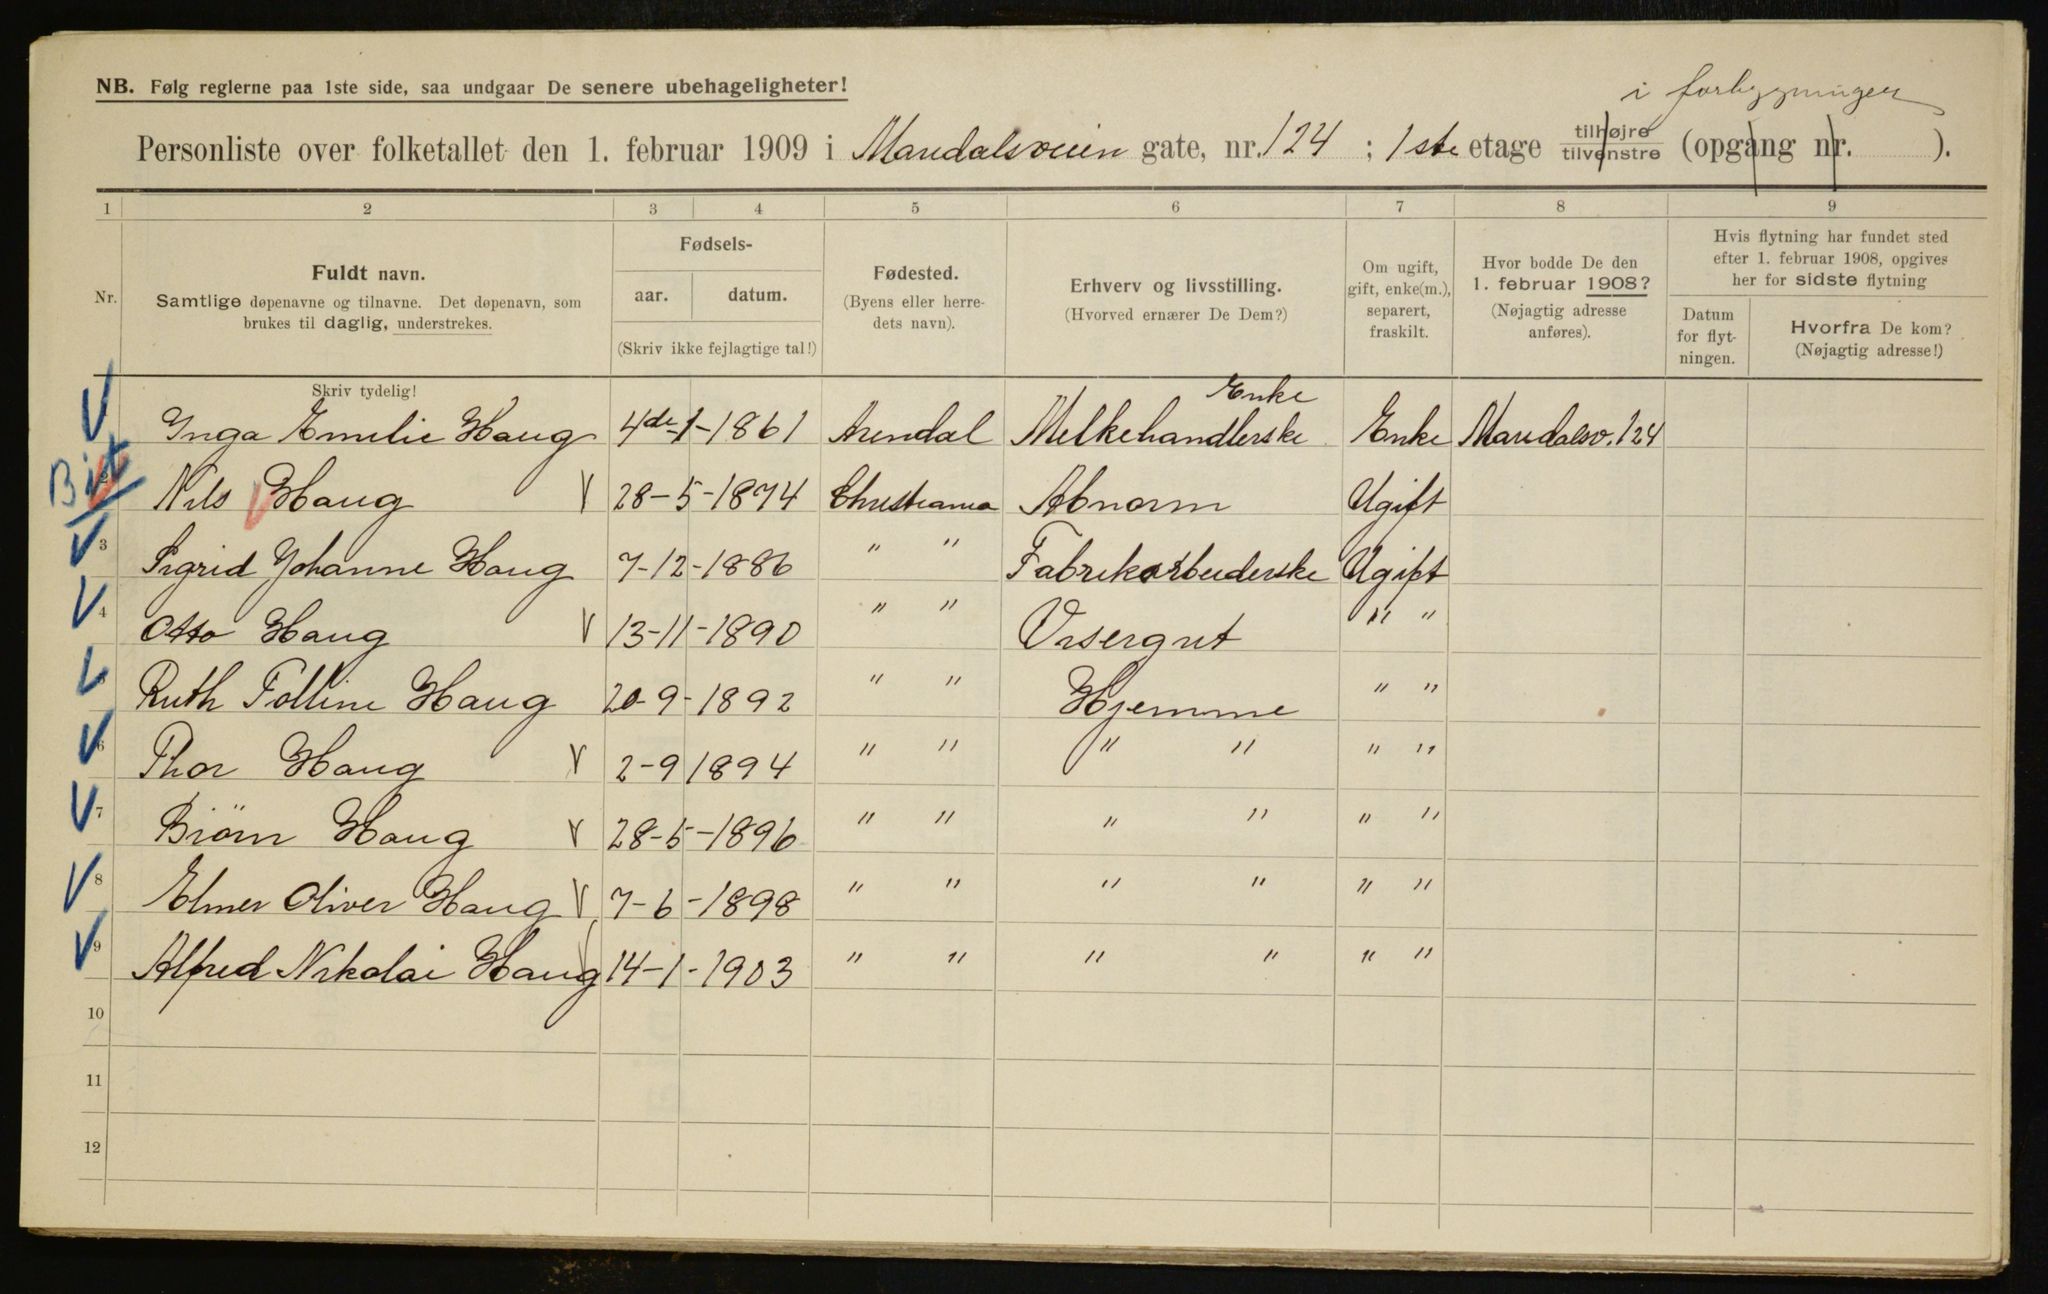 i forbygningen
NB. Følg reglerne paa 1ste side, saa undgaar De senere ubehageligheter!
Personliste over folketallet den 1. februar 1909 i Maridalsveien gate, nr. 124 ; 1ste etage tilhøjre tilvenstre (opgang nr. ).
1 2 3 4 5 6 7 8 9
Nr.
Fuldt navn.
Samtlige døpenavne og tilnavne. Det døpenavn, som
brukes til daglig, understrekes.
Fødsels-
aar. datum.
(Skriv ikke fejlagtige tal!)
Fødested.
(Byens eller herre-
dets navn).
Erhverv og livsstilling.
(Hvorved ernærer De Dem?)
Om ugift,
gift, enke(m.),
separert,
fraskilt.
Hvor bodde De den
1. februar 1908?
(Nøjagtig adresse
anføres).
Hvis flytning har fundet sted
efter 1. februar 1908, opgives
her for sidste flytning
Datum
for flyt-
ningen.
Hvorfra De kom?
(Nøjagtig adresse!)
Skriv tydelig!
Enke
Inga Emilie Haug 4de-1-1861 Arendal Melkehandlerske Enke Maridalsv. 124
Bit
Nils Haug 28-5-1874 Christiania Abnorm Ugift
3 Sigrid Johanne Haug 7-12-1886 " " Fabrikarbeiderske Ugift
4 Otto Haug 13-11-1890 " " Visergut " "
Ruth Folline Haug 20-9-1892 " " Hjemme " "
6 Thor Haug 2-9 1894 " " " " " "
7 Biörn Haug 28-5-1896 " " " " " "
8 Elmer Oliver Haug 7-6-1898 " " " " " "
9 Alfred Nikolai Haug 14-1-1903 " " " " " "
10
11
12